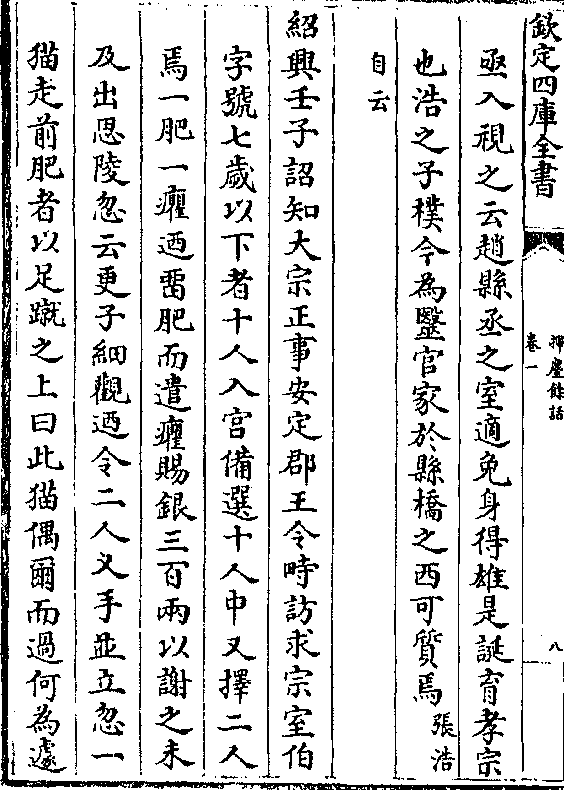 欽定四庫全書
揮麈餘話
卷一
八
亟入視之云趙縣丞之室適免身得雄是誕育孝宗
也浩之子樸今為毉官家於縣橋之西可質焉張浩
自云
紹興壬子詔知大宗正事安定郡王令畤訪求宗室伯
字號七歲以下者十人入宫備選十人中又擇二人
焉一肥一癯迺留肥而遣癯賜銀三百兩以謝之未
及出思陵忽云更子細觀迺令二人叉手並立忽一
猫走前肥者以足蹴之上曰此猫偶爾而過何為遽